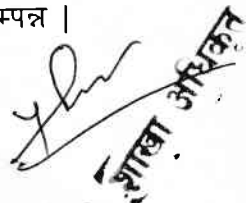 म्पन्न |
शाखा अधिकृत